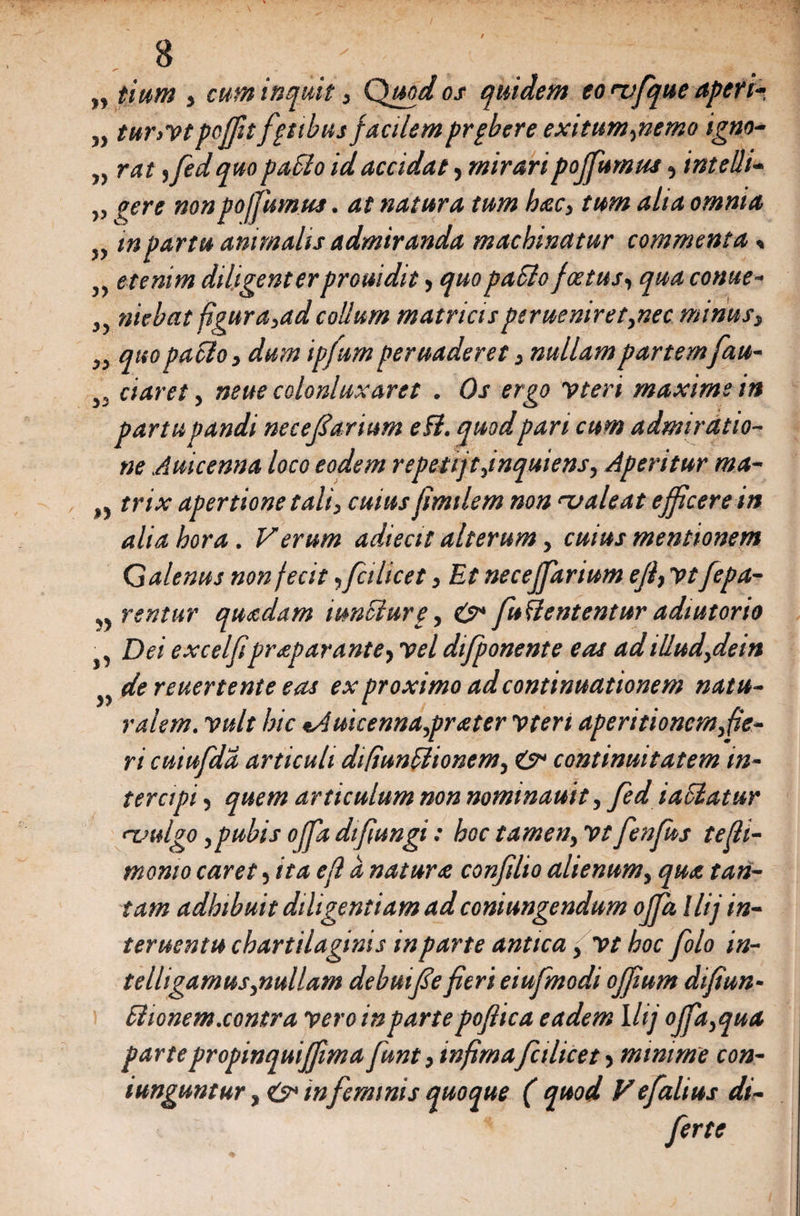 8
„ tium , cum inquit , Quod os quidem eo vſque aperi-
„ tur,vt poſſit fętibus facilem prębere exitum,nemo igno-
„ rat ,ſed quo pacto id accidat , mirari poſſumus , intelli-
„ gere non poſſumus . at natura tum hæc, tum alia omnia
„ in partu animalis admiranda machinatur commenta .
„ etenim diligenter prouidit , quo pacto fœtus, qua conue-
„ niebat figura,ad collum matricis perueniret,nec minus,
„ quo pacto , dum ipſum peruaderet , nullam partem ſau-
„ ciaret , neue colon luxaret . Os ergo vteri maxime in
partu pandi neceſſarium eſt. quod pari cum admiratio-
ne Auicenna loco eodem repetijt,inquiens, Aperitur ma-
„ trix apertione tali, cuius ſimilem non valeat efficere in
alia hora . Verum adiecit alterum , cuius mentionem
Galenus non fecit ,ſcilicet , Et neceſſarium eſt, vt ſepa-
„ rentur quædam iuncturę , & ſuſtententur adiutorio
„ Dei excelſi præparante, vel diſponente eas ad illud,dein
„ de reuertente eas ex proximo ad continuationem natu-
ralem. vult hic Auicenna,præter vteri aperitionem,fie-
ri cuiuſdã articuli diſiunctionem, & continuitatem in-
tercipi , quem articulum non nominauit , ſed iactatur
vulgo ,pubis oſſa diſiungi : hoc tamen, vt ſenſus teſti-
monio caret , ita eſt à naturæ conſilio alienum, quæ tan-
tam adhibuit diligentiam ad coniungendum oſſa Ilij in-
teruentu chartilaginis in parte antica , vt hoc ſolo in-
telligamus,nullam debuiſſe fieri eiuſmodi oſſium diſiun-
ctionem.contra vero in parte poſtica eadem Ilij oſſa,qua
parte propinquiſſima ſunt , infima ſcilicet , minime con-
iunguntur , & in feminis quoque ( quod Veſalius di-
ſerte